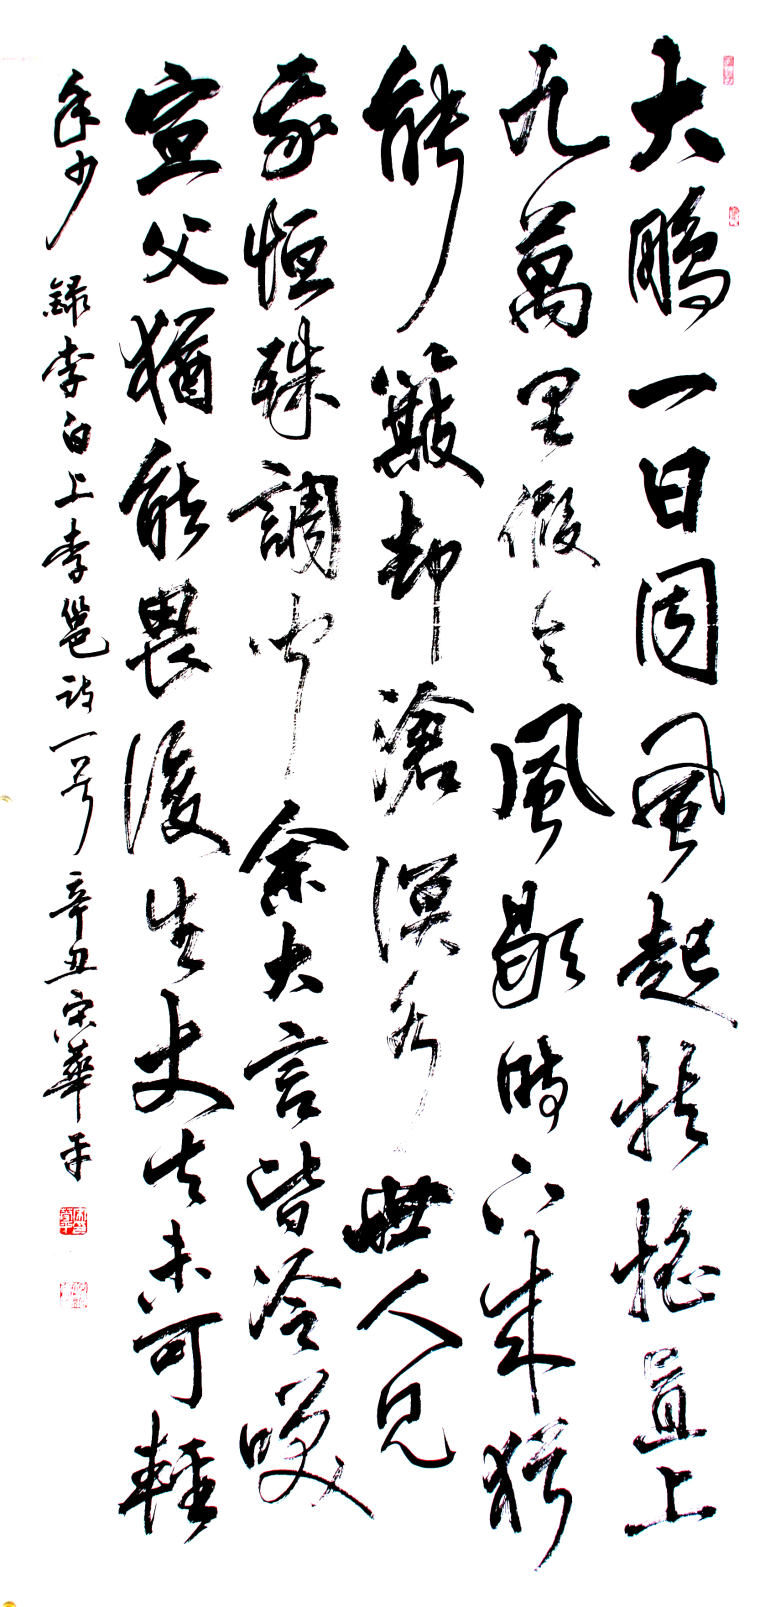 大鵬一日同風起扶搖直上
九萬里假令風歇時下来猶
能簸却滄溟水世人見
我恒殊調聞余大言皆冷咲
宣父猶能畏後生丈夫未可輕
年少 錄李白上李邕詩一首 辛丑宋華平